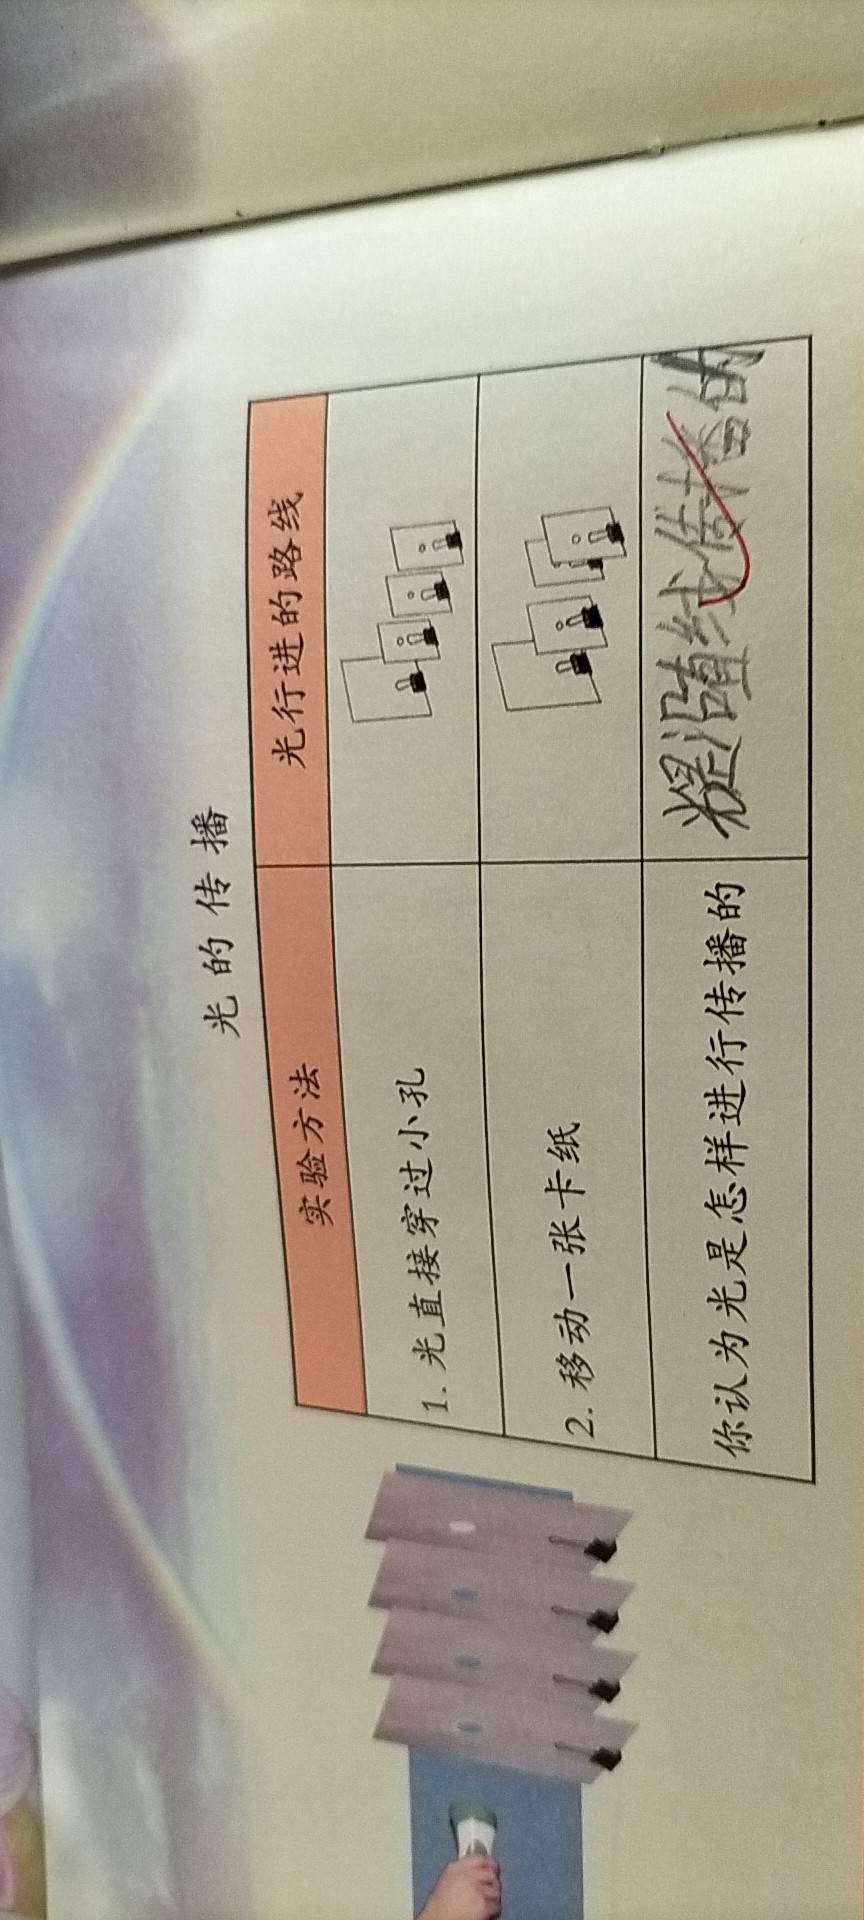 光的传播
实验方法 光行进的路线
1. 光直接穿过小孔
2. 移动一张卡纸
你认为光是怎样进行传播的 光是沿直线传播的